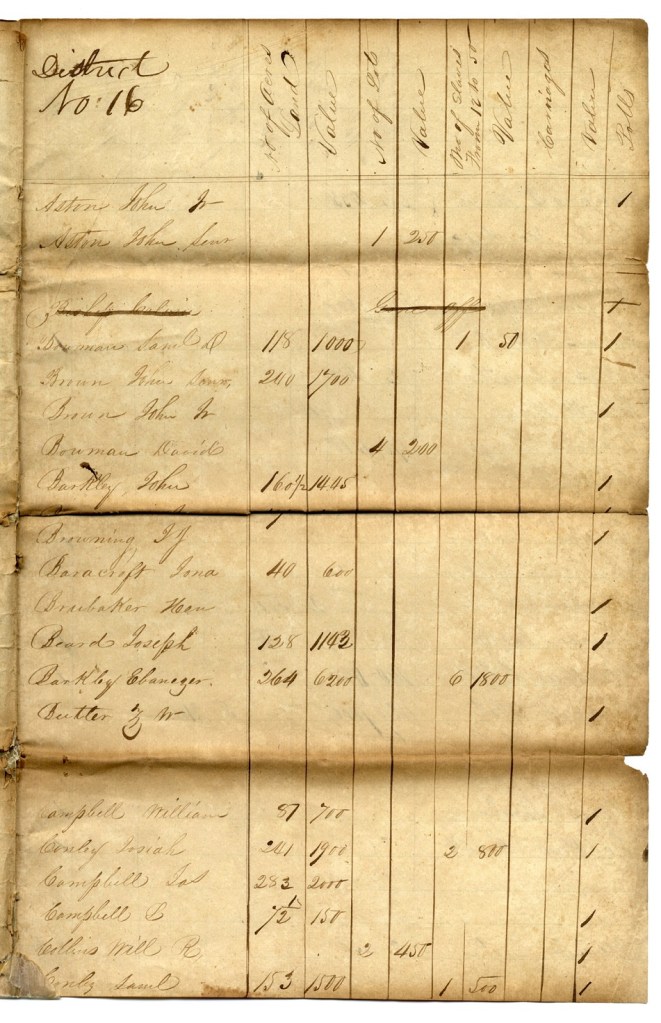 District
No. 16
No of Acres Land Value No of Lots Value No of Slaves From 12 to 50 Value Carriages Value Polls
Aston John Jr 1
Aston John Senr 1 250
Bowman Saml D 118 1000 1 50 1
Brown John Senr 240 1700
Brown John Jr 1
Bowman David 4 200
Barkley John 160 1/2 1445 1
Browning 1
Baracroft Jona 40 600
Brubaker Hen 1
Beard Joseph 128 1143 1
Barkley Ebanezer. 264 6200 6 1800
Butler W 1
Campbell William 87 700 1
Conley Josiah 241 1900 2 800 1
Campbell Jas 283 2000
Campbell 150 1
Collins Will R 2 450 1
Conly Saml 153 1500 1 500 1